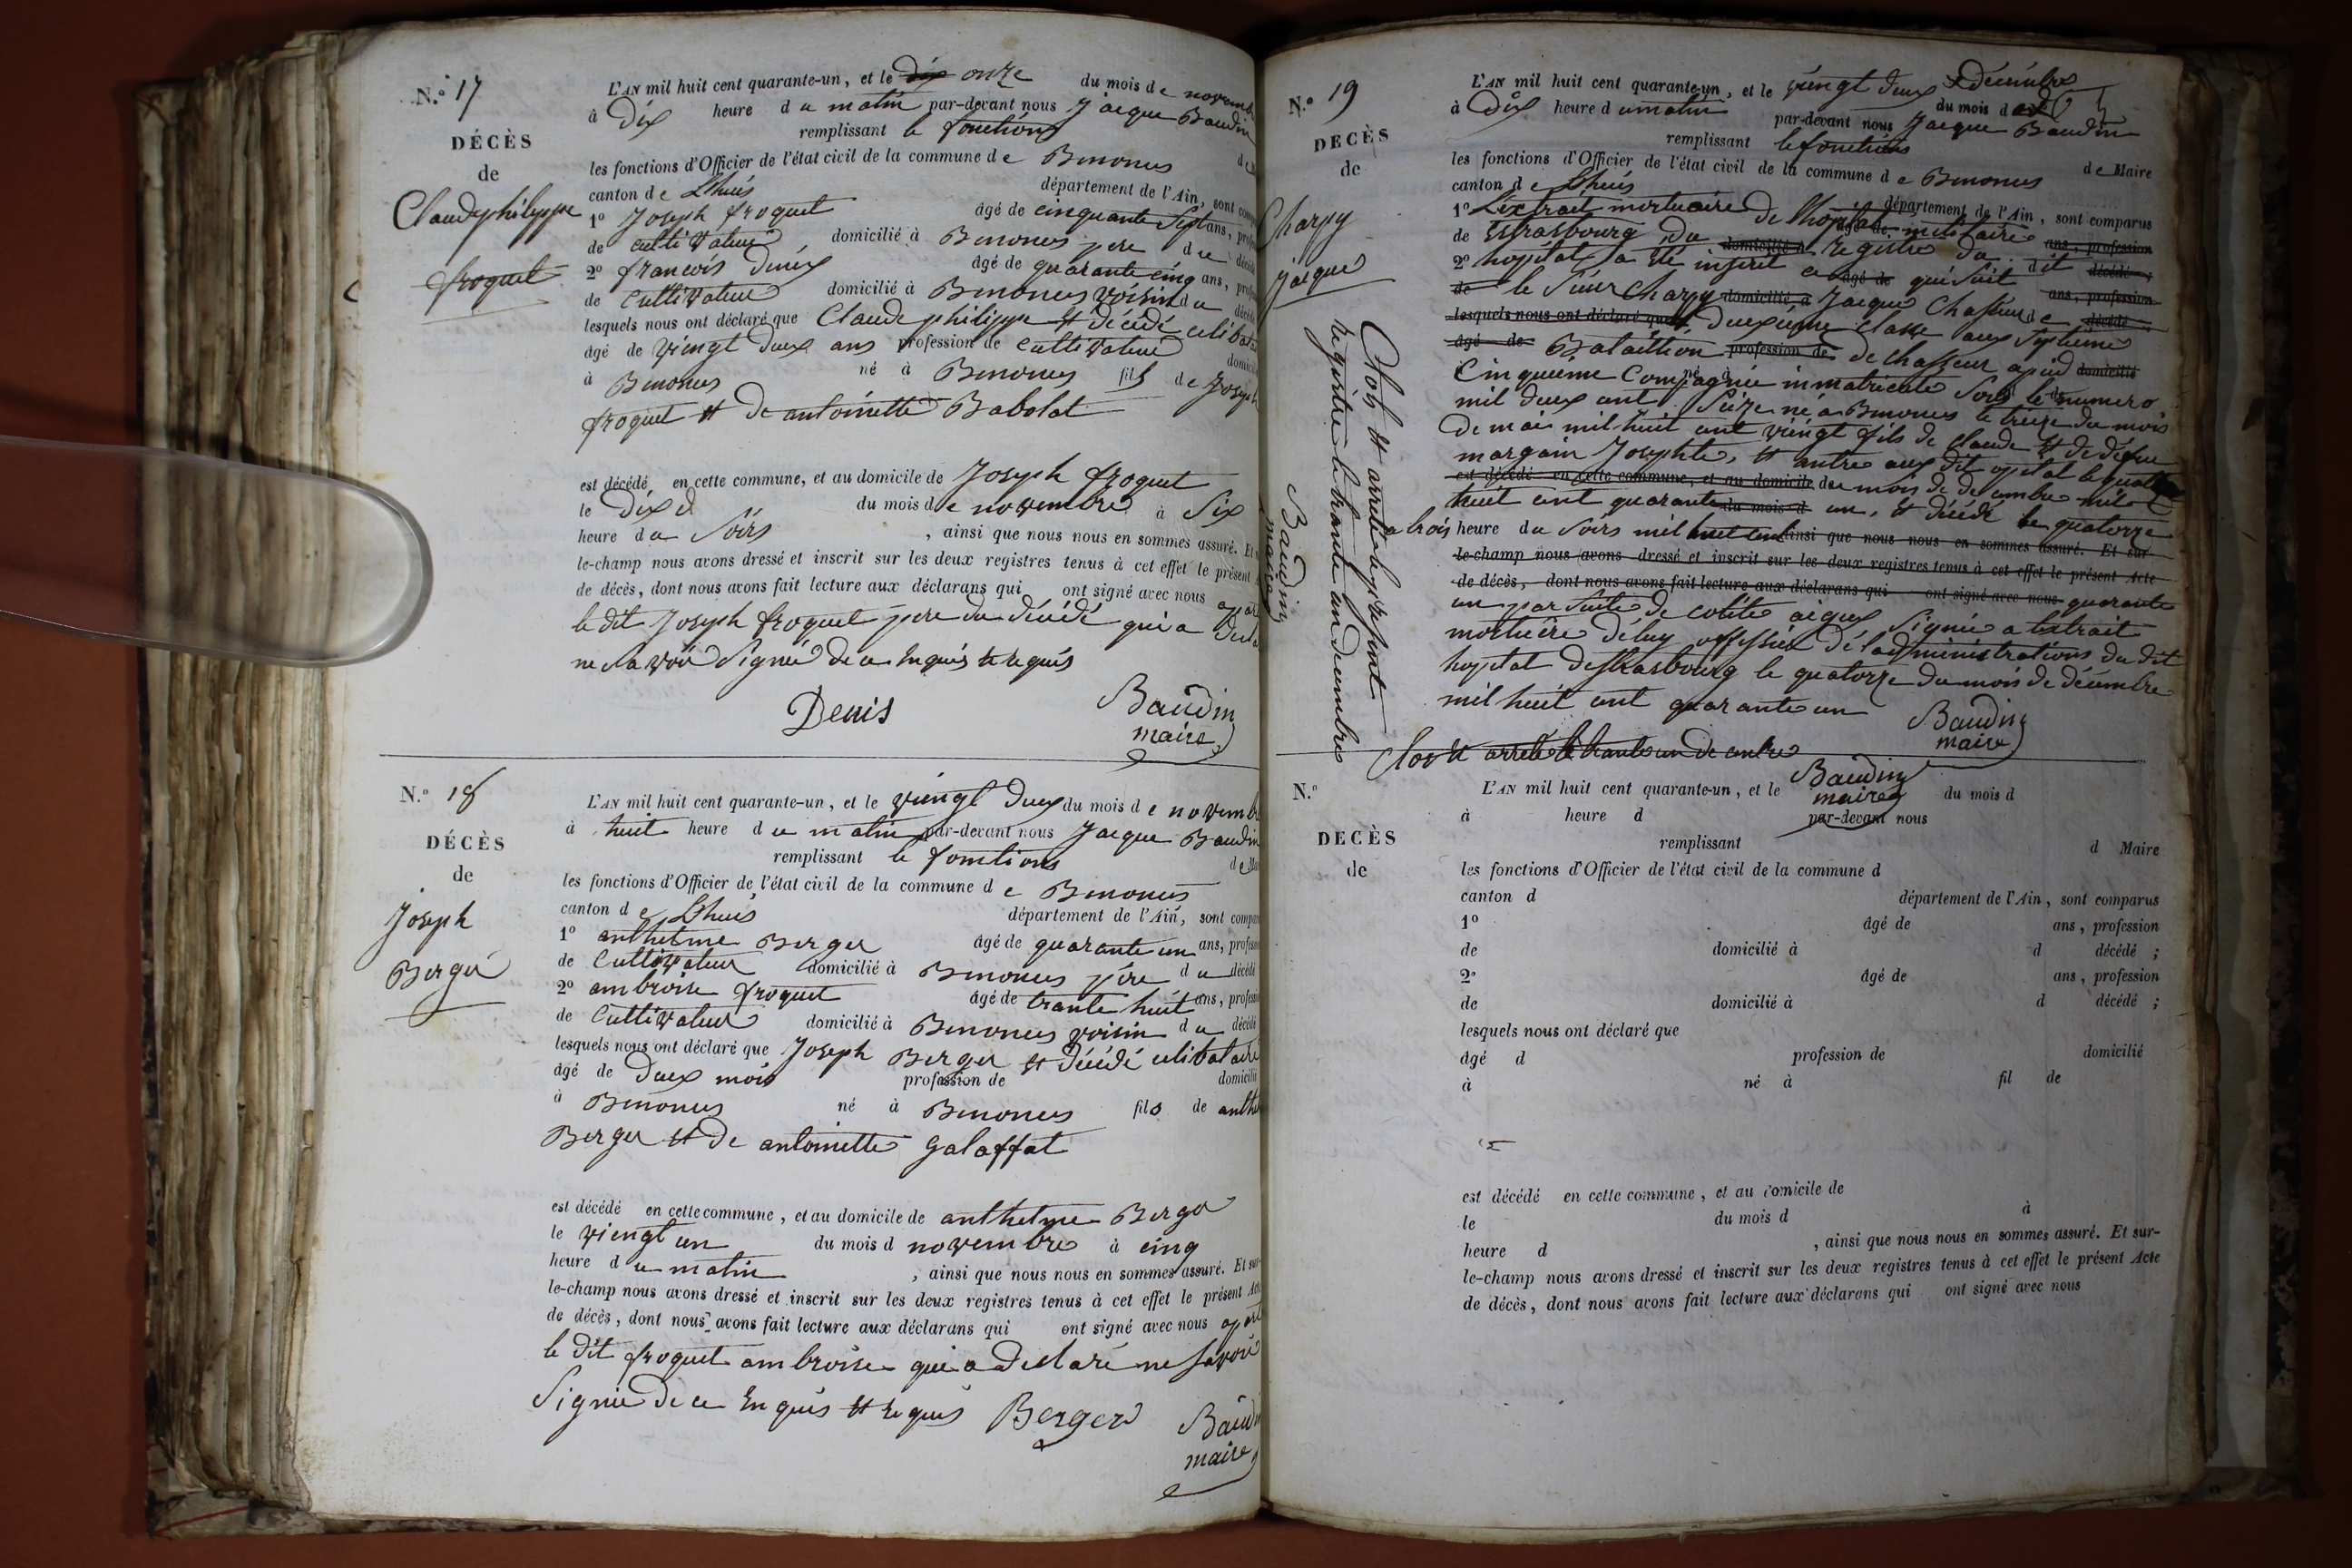 N.º 17
DÉCÈS
de
Claude philippe
froquet
L'AN mil huit cent quarante-un, et le dix onze du mois de novemb
à Dix heure du matin par-devant nous Jacque Baudin
remplissant le fonctions
les fonctions d'Officier de l'état civil de la commune de Benonces
canton de Lhuis département de l'Ain, sont comp
1º Joseph froquet âgé de cinquante Sept ans, prof
de cultivateur domicilié à Benonces père du décéd
2º francois âgé de quarante cinq ans, prof
de Cultivateur domicilié à Benonces voisin du décéd
lesquels nous ont déclaré que Claude philippe et décédé celibat
âgé de vingt deux ans profession de cultivateur domici
à Benonces né à Benonces fils de Joseph
froquet et de antoinette Babolat
est décédé en cette commune, et au domicile de Joseph froquet
le Dix d du mois de novembre à Six
heure du Soirs , ainsi que nous nous en sommes assuré. Et
le-champ nous avons dressé et inscrit sur les deux registres tenus à cet effet le présent
de décès, dont nous avons fait lecture aux déclarans qui ont signé avec nous apar
le dit Joseph froquet père du décédé qui a
ne savoir Signé de ce Enquis et requis
Denis
Baudin
maire
N.º 18
DÉCÈS
de
Joseph
Berger
L'AN mil huit cent quarante-un, et le vingt deux du mois de novemb
à huit heure du matin par-devant nous Jacque Baudin
remplissant le fontions de Mai
les fonctions d'Officier de l'état civil de la commune de Benonces
canton de Lhuis département de l'Ain, sont compar
1º anthelme Berger âgé de quarante un ans, profess
de Cultivateur domicilié à Benonces père du décédé
2º ambroise froquet âgé de trante huit ans, profess
de Cultivateur domicilié à Benonces voisin du décédé
lesquels nous ont déclaré que Joseph Berger et décédé celibataire
âgé de deux mois profession de domicilié
à Benonces né à Benonces fils de anthe
Berger et de antoinette Galaffat
est décédé en cette commune, et au domicile de anthelme Berger
le vingt un du mois d novembre à cinq
heure du matin , ainsi que nous nous en sommes assuré. Et sur
le-champ nous avons dressé et inscrit sur les deux registres tenus à cet effet le présent Acte
de décès, dont nous avons fait lecture aux déclarans qui ont signé avec nous apart
le dit froquet ambroise qui a declaré ne Savoir
Signé de ce Enquis et requis Berger
Baudin
maire
N.º 19
DECÈS
de
Charpy
jacque
Clos et arreté le present
registre le trante un decembre
Baudin
maire
L'AN mil huit cent quarante-un, et le vingt deux décembre
à Dix heure du matin du mois d
par-devant nous Jacque Baudin
remplissant le fonctions
les fonctions d'Officier de l'état civil de la commune de Benonces de Maire
canton de Lhuis département de l'Ain, sont comparus
1º Lextrait mortuaire De Lhopital militaire âgé de ans, profession
de Estrasbourg du domicilié à registre du dit décédé ;
2º hopital a été inscrit ce âgé de qui Suit ans, profession
de le Sieur Charpy domicilié à Jacque Chasseur de décédé ;
lesquels nous ont déclaré que deuxième classe aux Septième
âgé de Bataillion profession de de chasseur a pied domicilié
Cinquieme Compagnie inmatricule Sous le numero
mil deux cent Seize né a Benonces le treize du mois
De mai mil huit cent vingt fils de claude et de défue
margain Josephte, et entré aux dit opital le quat
est décédé en cette commune, et au domicile de du mois de decembre mil
huit cent quarante du mois d un, et décédé le quatorze
a trois heure du Soirs mil huit cent ainsi que nous nous en sommes assuré. Et sur
le-champ nous avons dressé et inscrit sur les deux registres tenus à cet effet le présent Acte
de décès, dont nous avons fait lecture aux déclarans qui ont signé avec nous quarante
un par suite de colite aigue Signée a lextrait
de l'administrations du dit
hopital destrasbourg le quatorze du mois de décembre
mil huit cent quarante un
Baudin
maire
Clos et arreté le trante un decembre
Baudin
maire
N.º
DECÈS
de
L'AN mil huit cent quarante-un, et le du mois d
à heure d par-devant nous
remplissant d Maire
les fonctions d'Officier de l'état civil de la commune d
canton d département de l'Ain, sont comparus
1º âgé de ans, profession
de domicilié à d décédé ;
2º âgé de ans, profession
de domicilié à d décédé ;
lesquels nous ont déclaré que
âgé d profession de domicilié
à né à fil de
est décédé en cette commune, et au domicile de
le du mois d à
heure d , ainsi que nous nous en sommes assuré. Et sur-
le-champ nous avons dressé et inscrit sur les deux registres tenus à cet effet le présent Acte
de décès, dont nous avons fait lecture aux déclarans qui ont signé avec nous